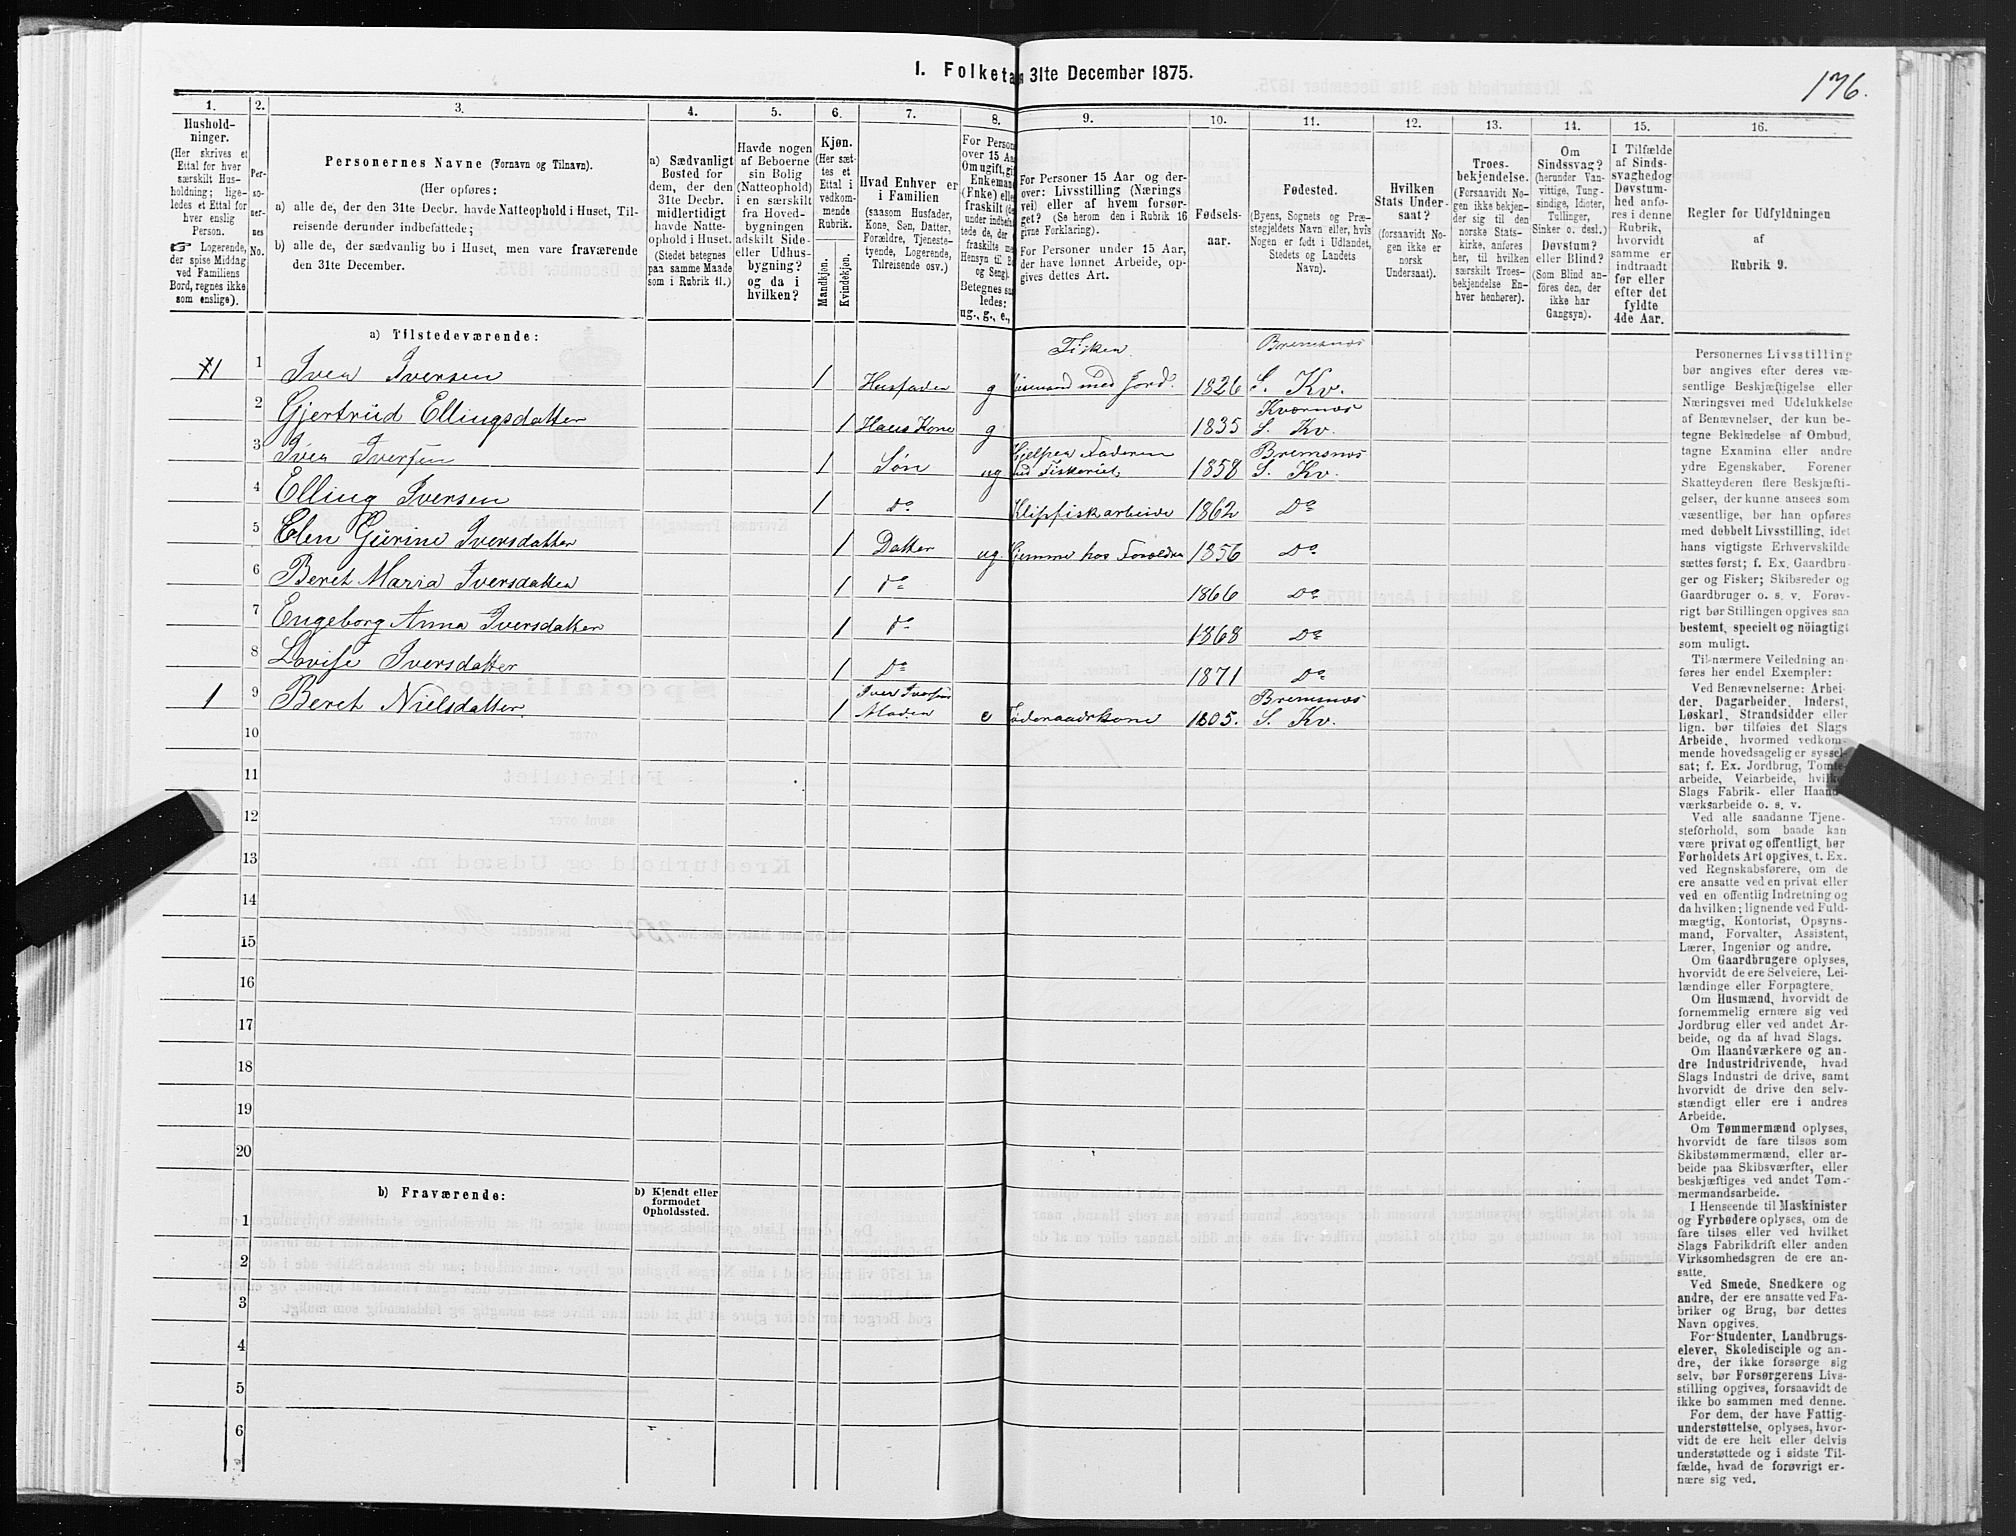 176.
1. Folketa 31te December 1875.
1. 2. 3. 4. 5. 6. 7. 8. 9. 10. 11. 12. 13. 14. 15. 16.
Hushold-
ninger.
(Her skrives et
Ettal for hver
særskilt Hus-
holdning; lige-
ledes et Ettal for
hver enslig
Person.
☞ Logerende,
der spise Middag
ved Familiens
Bord, regnes ikke
som enslige).
Per-
so-
ner-
nes
No.
Personernes Navne (Fornavn og Tilnavn).
(Her opføres:
a) alle de, der den 31te Decbr. havde Natteophold i Huset, Til-
reisende derunder indbefattede;
b) alle de, der sædvanlig bo i Huset, men vare fraværende
den 31te December.
a) Sædvanligt
Bosted for
dem, der den
31te Decbr.
midlertidigt
havde Natte-
ophold i Huset.
(Stedet betegnes
paa samme Maade
som i Rubrik 11.)
Havde nogen
af Beboerne
sin Bolig
(Natteophold)
i en særskilt
fra Hoved-
bygningen
adskilt Side-
eller Udhus-
bygning?
og da i
hvilken?
Kjøn.
(Her sæt-
tes et
Ettal i
vedkom-
mende
Rubrik.
Mandkjøn.
Kvindekjøn.
Hvad Enhver er
i Familien
(saasom Husfader,
Kone, Søn, Datter,
Forældre, Tjeneste-
tyende, Logerende,
Tilreisende osv.)
For Person
over 15 Aa
Om ugift, gif
Enkeman
(Enke) elle
fraskilt (de
under indbefat-
tede de, der e
fraskilte me
Hensyn til Bo
og Seng).
Betegnes saa
ledes:
ug., g., e.,
For Personer 15 Aar og der-
over: Livsstilling (Nærings
vei) eller af hvem forsør-
get? (Se herom den i Rubrik 16
givne Forklaring).
For Personer under 15 Aar,
der have lønnet Arbeide, op-
gives dettes Art.
Fødsels-
aar.
Fødested.
(Byens, Sognets og Præ-
stegjeldets Navn eller, hvis
Nogen er født i Udlandet,
Stedets og Landets
Navn).
Hvilken
Stats Under-
saat?
(forsaavidt No-
gen ikke er
norsk
Undersaat).
Troes-
bekjendelse.
(Forsaavidt No-
gen ikke bekjen-
der sig til den
norske Stats-
kirke, anføres
her, til hvilken
særskilt Troes-
bekjendelse En-
hver henhører).
Om
Sindssvag?
(herunder Van-
vittige, Tung-
sindige, Idioter,
Tullinger,
Sinker o. desl.)
Døvstum?
eller Blind?
(Som Blind an-
føres den, der
ikke har
Gangsyn).
I Tilfælde
af Sinds-
svaghedog
Døvstum-
hed anfø-
res i denne
Rubrik,
hvorvidt
samme er
indtraadt
før eller
efter det
fyldte
4de Aar.
Regler for Udfyldningen
af
Rubrik 9.
a) Tilstedeværende:
1 1 Iver Iversen 1 Husfader g Fisker med Jord. 1826 Bremsnes S. Kv.
2 Gjertrud Ellingsdatter 1 Hans Kone g 1835 Kværnes S. Kv.
3 Iver Iversen 1 Søn ug Hjelper Faderen ved Fiskeriet, 1858 Bremsnes S. Kv.
4 Elling Iversen 1 do Klipfiskarbeide 1862 Do
5 Elen Gurine Iversdatter 1 Datter ug. Hjemme hos Forældre 1856 Do
6 Beret Maria Iversdatter 1 do 1866 Do
7 Engeborg Anna Iversdatter 1 do 1868 Do
8 Lovise Iversdatter 1 Do 1871 Do
1 9 Beret Nielsdatter. 1 Iver Iversens Moder e Føderaadskone 1805. Bremsnes S. Kv.
10
11
12
13
14
15
16
17
18
19
20
b) Fraværende:
b) Kjendt eller
formodet
Opholdssted.
1
2
3
4
5
6
Personernes Livsstilling
bør angives efter deres væ-
sentlige Beskjæftigelse eller
Næringsvei med Udelukkelse
af Benævnelser, der kun be-
tegne Beklædelse af Ombud,
tagne Examina eller andre
ydre Egenskaber. Forener
Skatteyderen flere Beskjæfti-
gelser, der kunne ansees som
væsentlige, bør han opføres
med dobbelt Livsstilling, idet
hans vigtigste Erhvervskilde
sættes først; f. Ex. Gaardbru-
ger og Fisker; Skibsreder og
Gaardbruger o. s. v. Forøv-
rigt bør Stillingen opgives saa
bestemt, specielt og nöiagtigt
som muligt.
Til nærmere Veiledning an-
føres her endel Exempler:
Ved Benævnelserne: Arbei-
der, Dagarbeider, Inderst,
Løskarl, Strandsidder eller
lign. bør tilføies det Slags
Arbeide, hvormed vedkom-
mende hovedsagelig er syssel-
sat; f. Ex. Jordbrug, Tomte-
arbeide, Veiarbeide, hvilke
Slags Fabrik- eller Haand-
værksarbeide o. s. v.
Ved alle saadanne Tjene-
steforhold, som baade kan
være privat og offentligt, bør
Forholdets Art opgives, t. Ex.
ved Regnskabsførere, om de
ere ansatte ved en privat eller
ved en offentlig Indretning og
da hvilken; lignende ved Fuld-
mægtig, Kontorist, Opsyns-
mand, Forvalter, Assistent,
Lærer, Ingeniør og andre.
Om Gaardbrugere oplyses,
hvorvidt de ere Selveiere, Lei-
lændinge eller Forpagtere.
Om Husmænd, hvorvidt de
fornemmelig ernære sig ved
Jordbrug eller ved andet Ar-
beide, og da af hvad Slags.
Om Haandværkere og an-
dre Industridrivende, hvad
Slags Industri de drive, samt
hvorvidt de drive den selv-
stændigt eller ere i andres
Arbeide.
Om Tømmermænd oplyses,
hvorvidt de fare tilsøs som
Skibstømmermænd, eller ar-
beide paa Skibsværfter, eller
beskjæftiges ved andet Tøm-
mermandsarbeide.
I Henseende til Maskinister
og Fyrbødere oplyses, om de
fare tilsøs eller ved hvilket
Slags Fabrikdrift eller anden
Virksomhedsgren de ere an-
satte.
Ved Smede, Snedkere og
andre, der ere ansatte ved Fa-
briker og Brug, bør dettes
Navn opgives.
For Studenter, Landbrugs-
elever, Skoledisciple og an-
dre, der ikke forsørge sig
selv, bør Forsørgerens Livs-
stilling opgives, forsaavidt de
ikke bo sammen med denne.
For dem, der have Fattig-
understøttelse, oplyses, hvor-
vidt de ere helt eller delvis
understøttede og i sidste Til-
fælde, hvad de forøvrigt er-
nære sig ved.